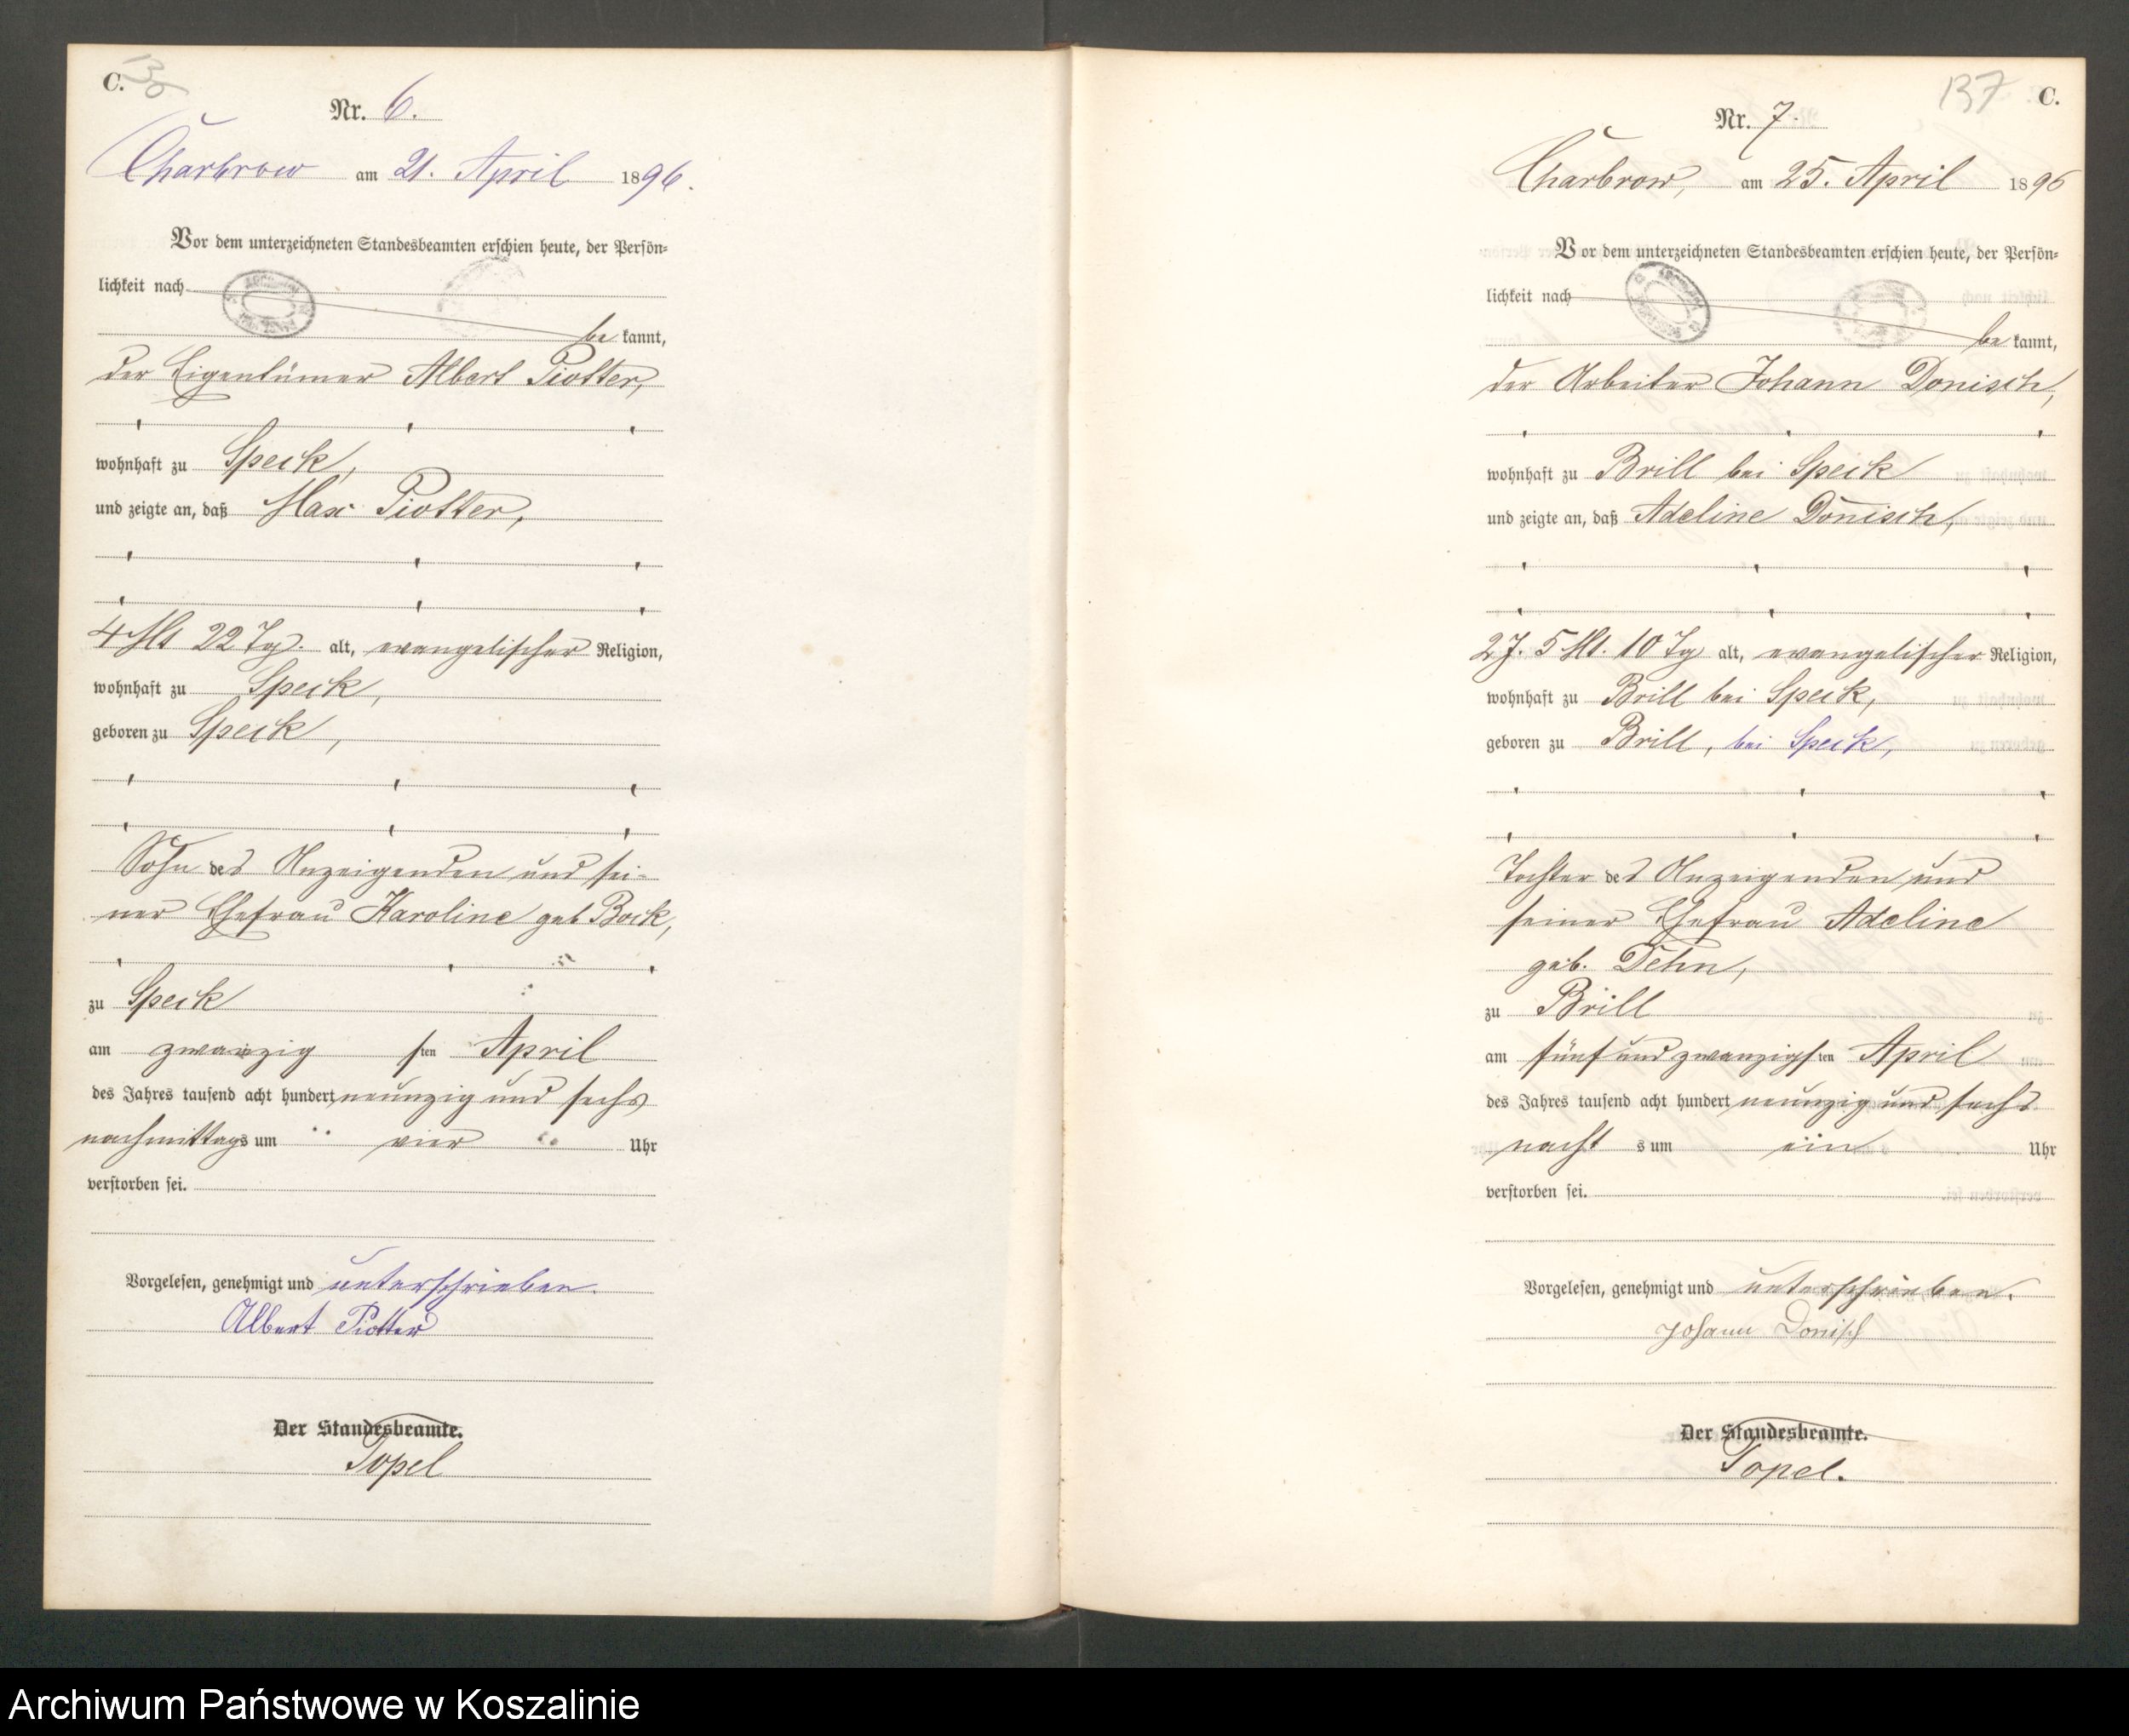 C.
Nr. 6.
Charbrow am 21. April 1896.
Vor dem unterzeichneten Standesbeamten erschien heute, der Persön-
lichkeit nach
be kannt,
der Eigentümer Albert Piotter,
wohnhaft zu Speck,
und zeigte an, daß Max Piotter,
4 Mt 22 Tg. alt, evangelischer Religion,
wohnhaft zu Speck,
geboren zu Speck,
Sohn des Anzeigenden und sei-
ner Ehefrau Karoline geb Bock,
zu Speck
am zwanzig sten April
des Jahres tausend acht hundert neunzig und sechs
nachmittags um vier Uhr
verstorben sei.
Vorgelesen, genehmigt und unterschrieben.
Albert Piotter
Der Standesbeamte.
Topel
137 C.
Nr. 7.
Charbrow, am 25. April 1896
Vor dem unterzeichneten Standesbeamten erschien heute, der Persön-
lichkeit nach
be kannt,
der Arbeiter Johann Donisch,
wohnhaft zu Brill bei Speck
und zeigte an, daß Adeline Donisch,
2 J. 5 Mt. 10 Tg alt, evangelischer Religion,
wohnhaft zu Brill bei Speck,
geboren zu Brill, bei Speck,
Tochter des Anzeigenden und
seiner Ehefrau Adeline
geb. Dehn,
zu Brill
am fünf und zwanzigsten April
des Jahres tausend acht hundert neunzig und sechs
nacht s um ein Uhr
verstorben sei.
Vorgelesen, genehmigt und unterschrieben.
Johann Donisch
Der Standesbeamte.
Topel.
Archiwum Państwowe w Koszalinie